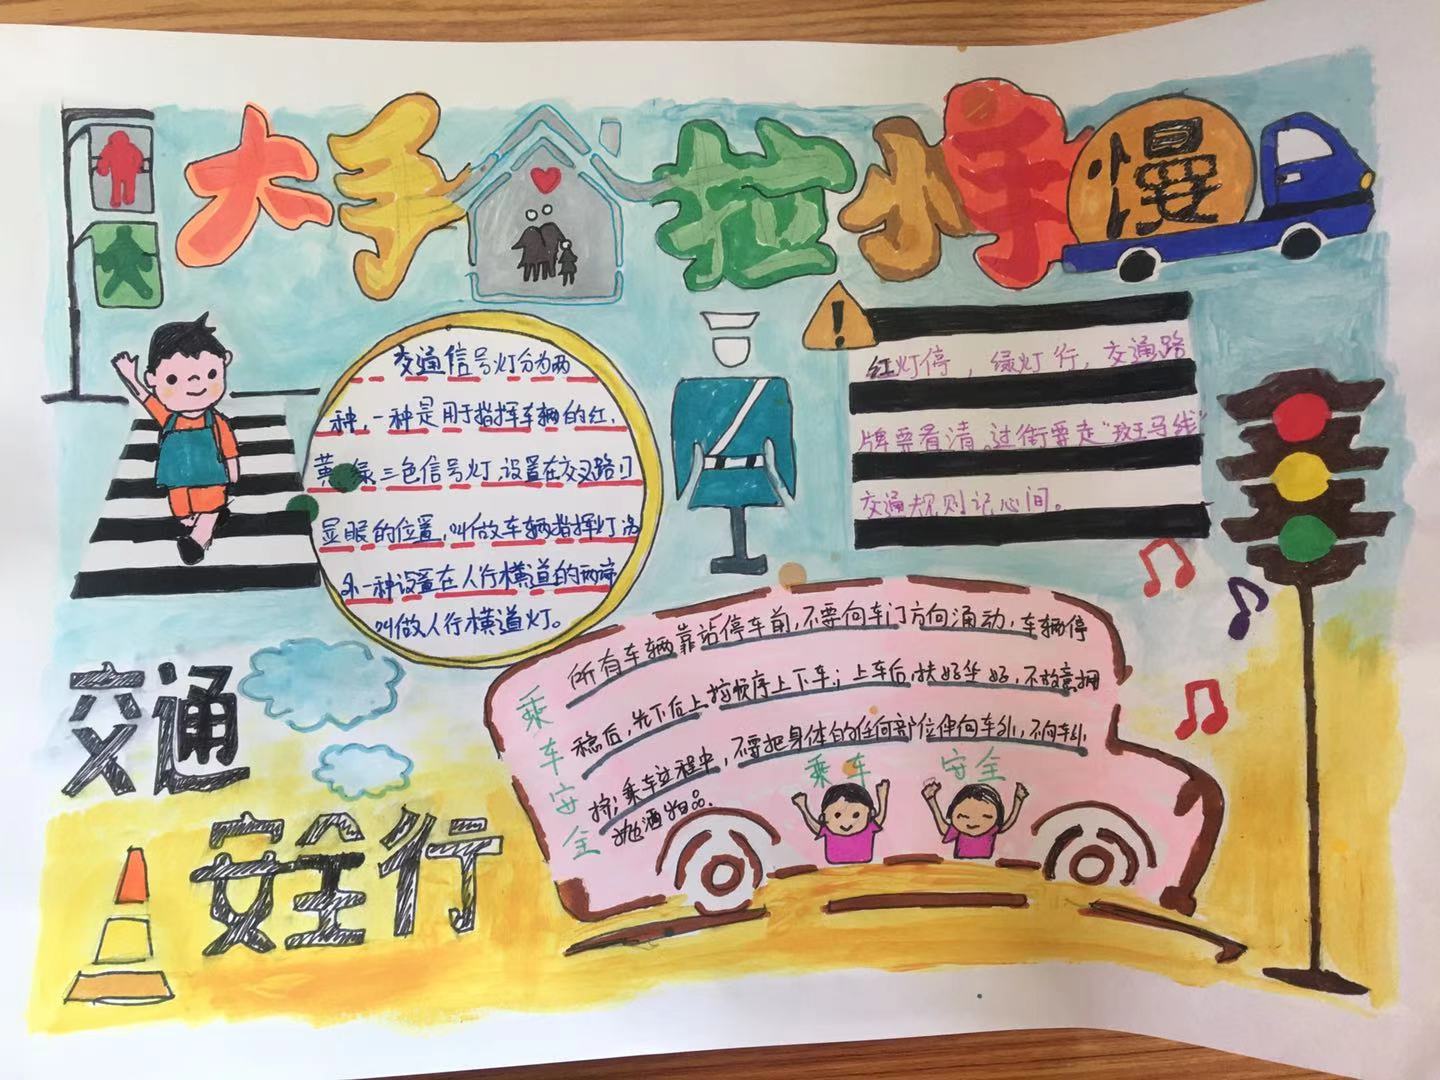 大手拉小手
慢
交通信号灯分为两
种,一种是用于指挥车辆的红,
黄 绿三色信号灯,设置在交叉路口
显眼的位置,叫做车辆指挥灯 另
外一种设置在人行横道的两端
叫做人行横道灯。
!
红灯停,绿灯行,交通路
牌要看清。过街要走“斑马线”
交通规则记心间。
交通
安全行
乘车安全
所有车辆靠站停车前,不要向车门方向涌动,车辆停
稳后,先下后上按顺序上下车;上车后,扶好坐好,不故意拥
挤;乘车过程中,不要把身体的任何部位伸向车外,不向车外
抛洒物品.
乘车 安全